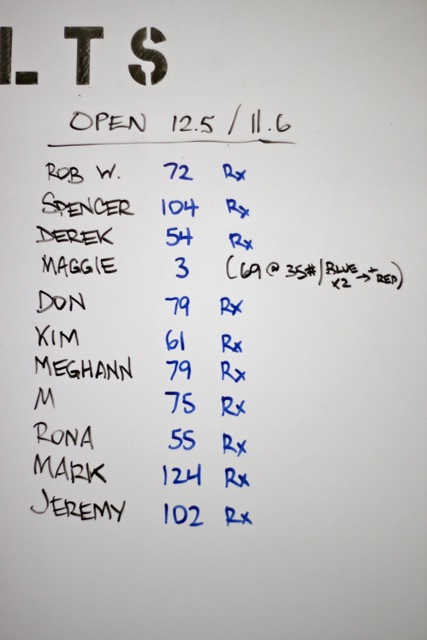 LTS
OPEN 12.5 / 11.6
ROB W. 72 Rx
SPENCER 104 Rx
DEREK 54 Rx
MAGGIE 3 (69 @ 35# / BLUE x2 → + RED)
DON 79 Rx
KIM 61 Rx
MEGHANN 79 Rx
M 75 Rx
RONA 55 Rx
MARK 124 Rx
JEREMY 102 Rx